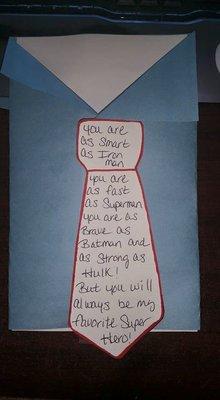 you are
as Smart
as Iron
man
you are
as fast
as Superman
you are as
Brave as
Batman and
as Strong as
Hulk!
But you will
always be my
favorite Super
Hero!